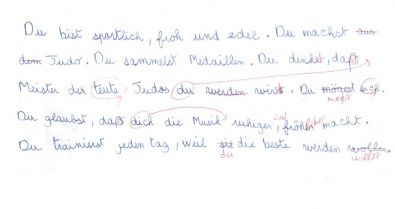 Du bist sportlich, froh und edel. Du machst aus
dem Judo. Du sammelst Medaillen. Du denkst, daß
Meister der Leute Judos du werden wirst. Du magst
magst
und
Du glaubst, daß dich die Musik ruhiger, fröhlicher macht.
Du trainierst jeden tag, weil sie die beste werden wollen.
du willst